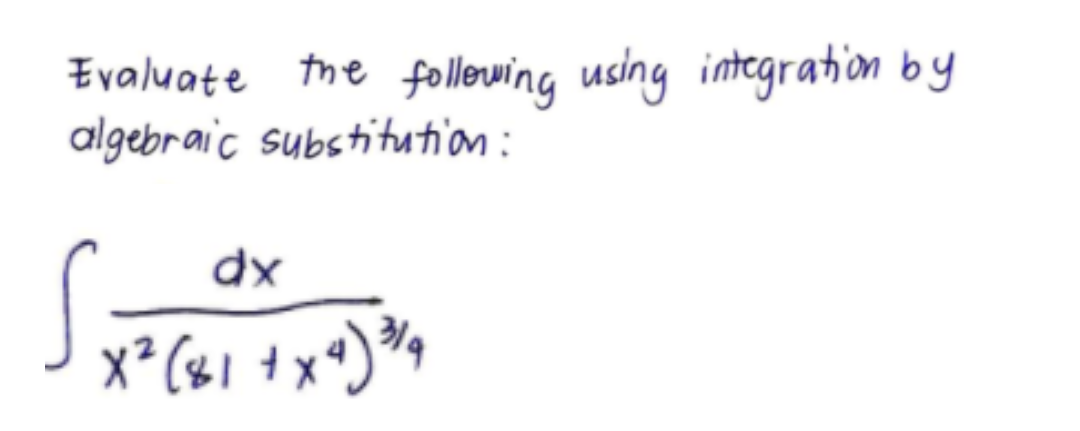 Evaluate the following using integration by
algebraic substitution:
∫ dx / x²(81 + x⁴)^3/4